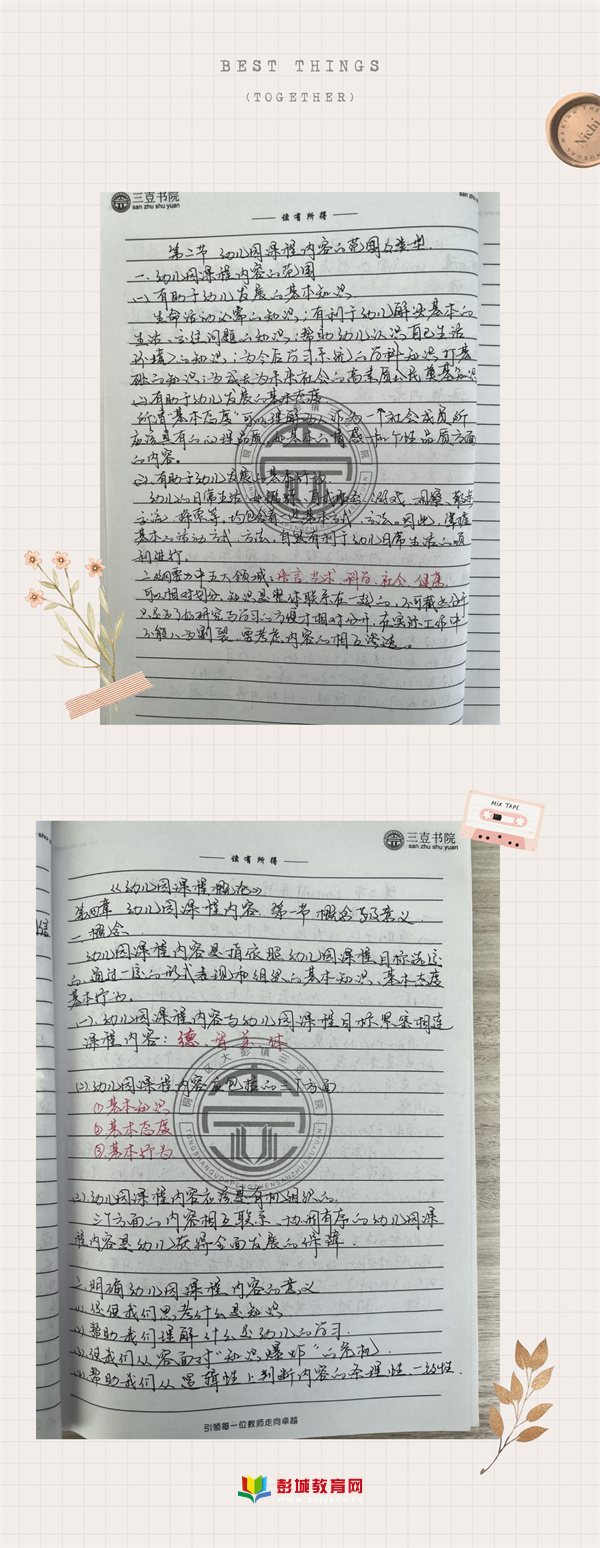 BEST THINGS
(TOGETHER)
MAKING THE
Nichi
三壴书院
san zhu shu yuan
读有所得
第二节 幼儿园课程内容的范围与类型.
一、幼儿园课程内容的范围
(一)有助于幼儿发展的基本知识
生命活动必需的知识；有利于幼儿解决基本的
生活、交往问题的知识；帮助幼儿认识自己生活
环境的知识；为今后学习系统的学科知识打基
础的知识；为成长为未来社会的高素质公民奠基知识
(二)有助于幼儿发展的基本态度
所谓"基本态度"可以理解为,作为一个社会成员所
应该具有的心理品质,如基本的情感和个性品质方面
的内容。
(三)有助于幼儿发展的基本行为
幼儿的日常生活 自我服务、游戏、观察、
交流、探索等,均包含着一些基本方式、方法。因此,掌握
基本的活动方式、方法,自然有利于幼儿日常生活的顺
利进行。
二、《纲要》中五大领域,语言 艺术 科学 社会 健康
可以相对划分.知识是整体联系在一起的,不可截然分开
只是为了研究与学习的方便才相对分开.在实际工作中
不能人为割裂.要考虑内容的相互渗透。
MIX TAPE
三壴书院
san zhu shu yuan
读有所得
《幼儿园课程概论》
第四章 幼儿园课程内容 第一节 概念与意义
一、概念
幼儿园课程内容是指依照幼儿园课程目标选定
的,通过一定的形式表现和组织的基本知识、基本态度
基本行为.
(一)、幼儿园课程内容与幼儿园课程目标紧密相连
课程内容：德、智、美、体
(二)幼儿园课程内容应包括的三个方面
①基本知识
②基本态度
③基本行为
(三)幼儿园课程内容应该是有机组织的.
三个方面的内容相互联系、协调有序的幼儿园课
程内容是幼儿获得全面发展的保障.
二、明确幼儿园课程内容的意义
(1)促使我们思考什么是知识
(2)帮助我们理解什么是幼儿的学习.
(3)促我们从容面对"知识爆炸"的危机.
(4)帮助我们从逻辑性上判断内容的条理性、一致性.
引领每一位教师走向卓越
彭城教育网